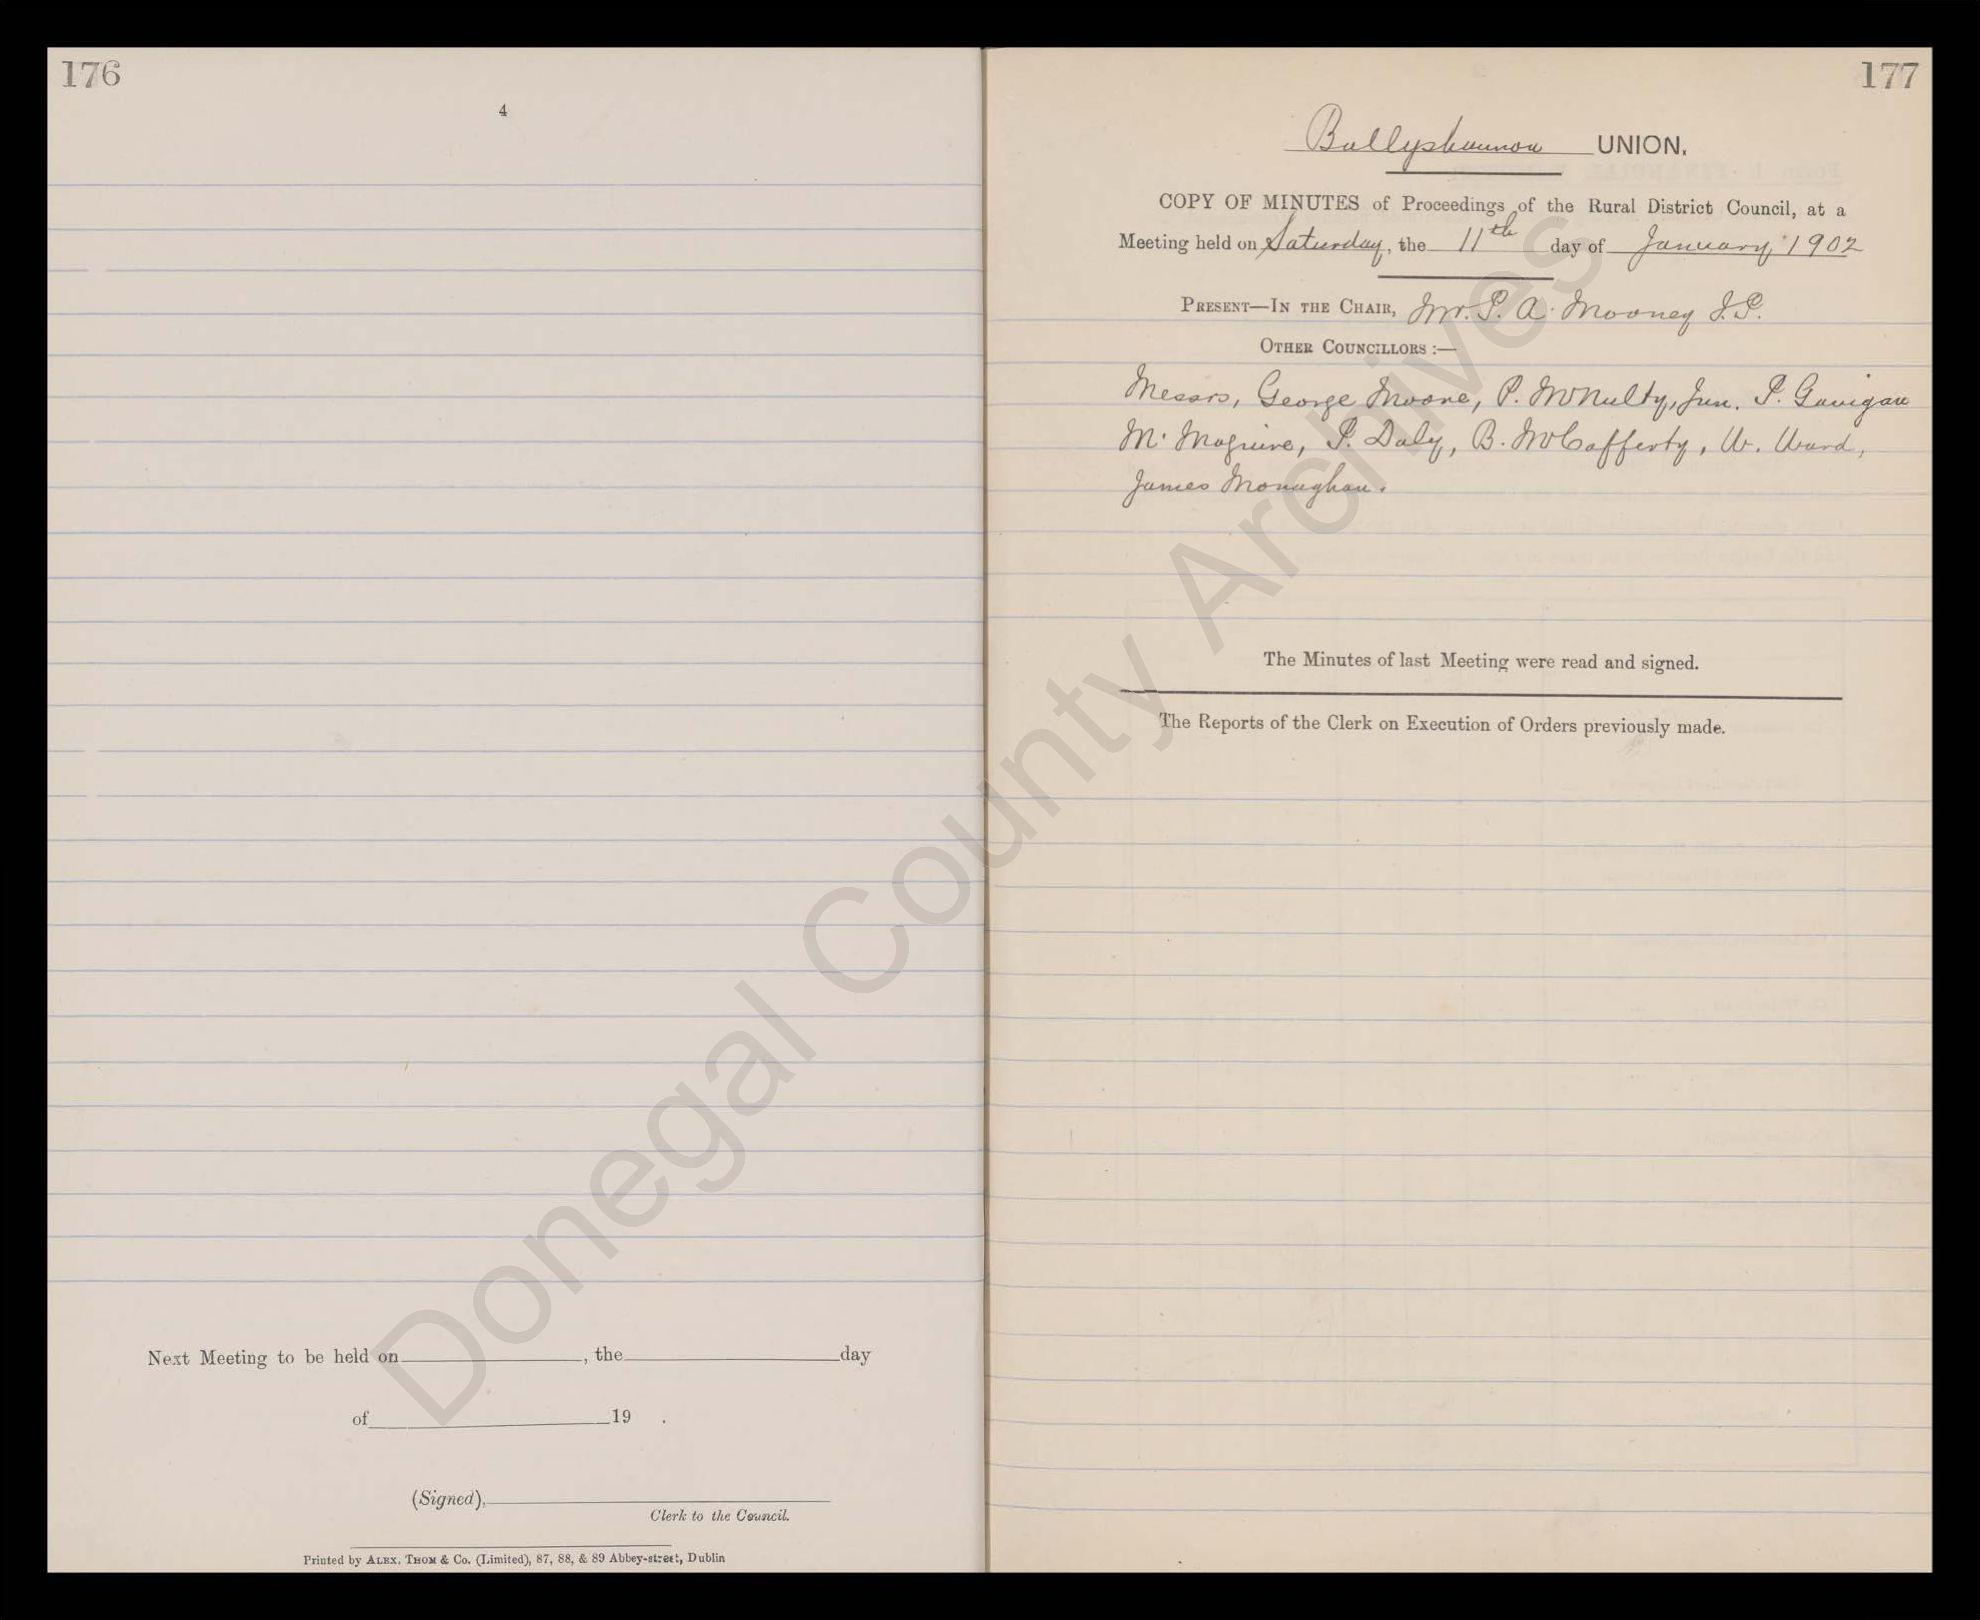 176
4
Next Meeting to be held on , the day
of 19 .
(Signed),
Clerk to the Council.
Printed by ALEX. THOM & Co. (Limited), 87, 88, & 89 Abbey-street, Dublin
177
Ballyshannon UNION.
COPY OF MINUTES of Proceedings of the Rural District Council, at a
Meeting held on Saturday, the 11th day of January 1902
PRESENT—IN THE CHAIR, Mr. P. A. Mooney J.P.
OTHER COUNCILLORS :—
Messrs, George Moore, P. McNulty, Jun. P. Gavigan
M. Maguire, P. Daly, B. McCafferty, W. Ward,
James Monaghan.
The Minutes of last Meeting were read and signed.
The Reports of the Clerk on Execution of Orders previously made.
Donegal County Archives